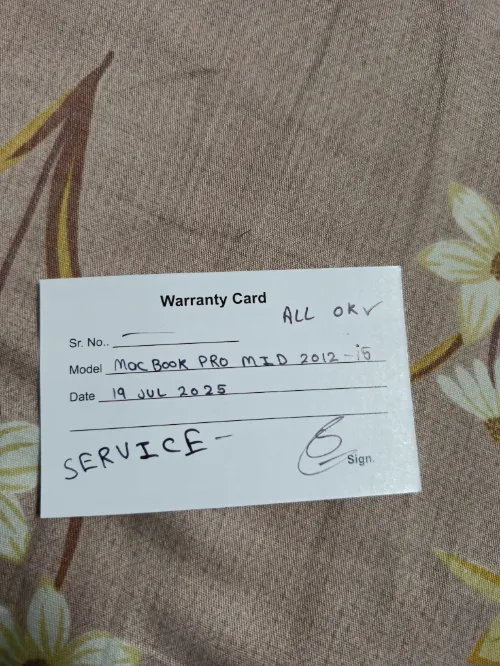 Warranty Card
ALL OK ✓
Sr. No..
Model MacBook PRO MID 2012 - i5
Date 19 JUL 2025
SERVICE -
Sign.